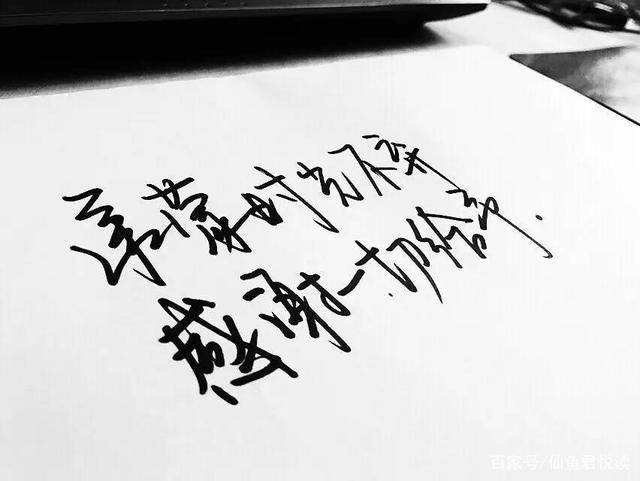 承蒙时光不弃
感谢一切给予.
百家号/仙鱼君悦读